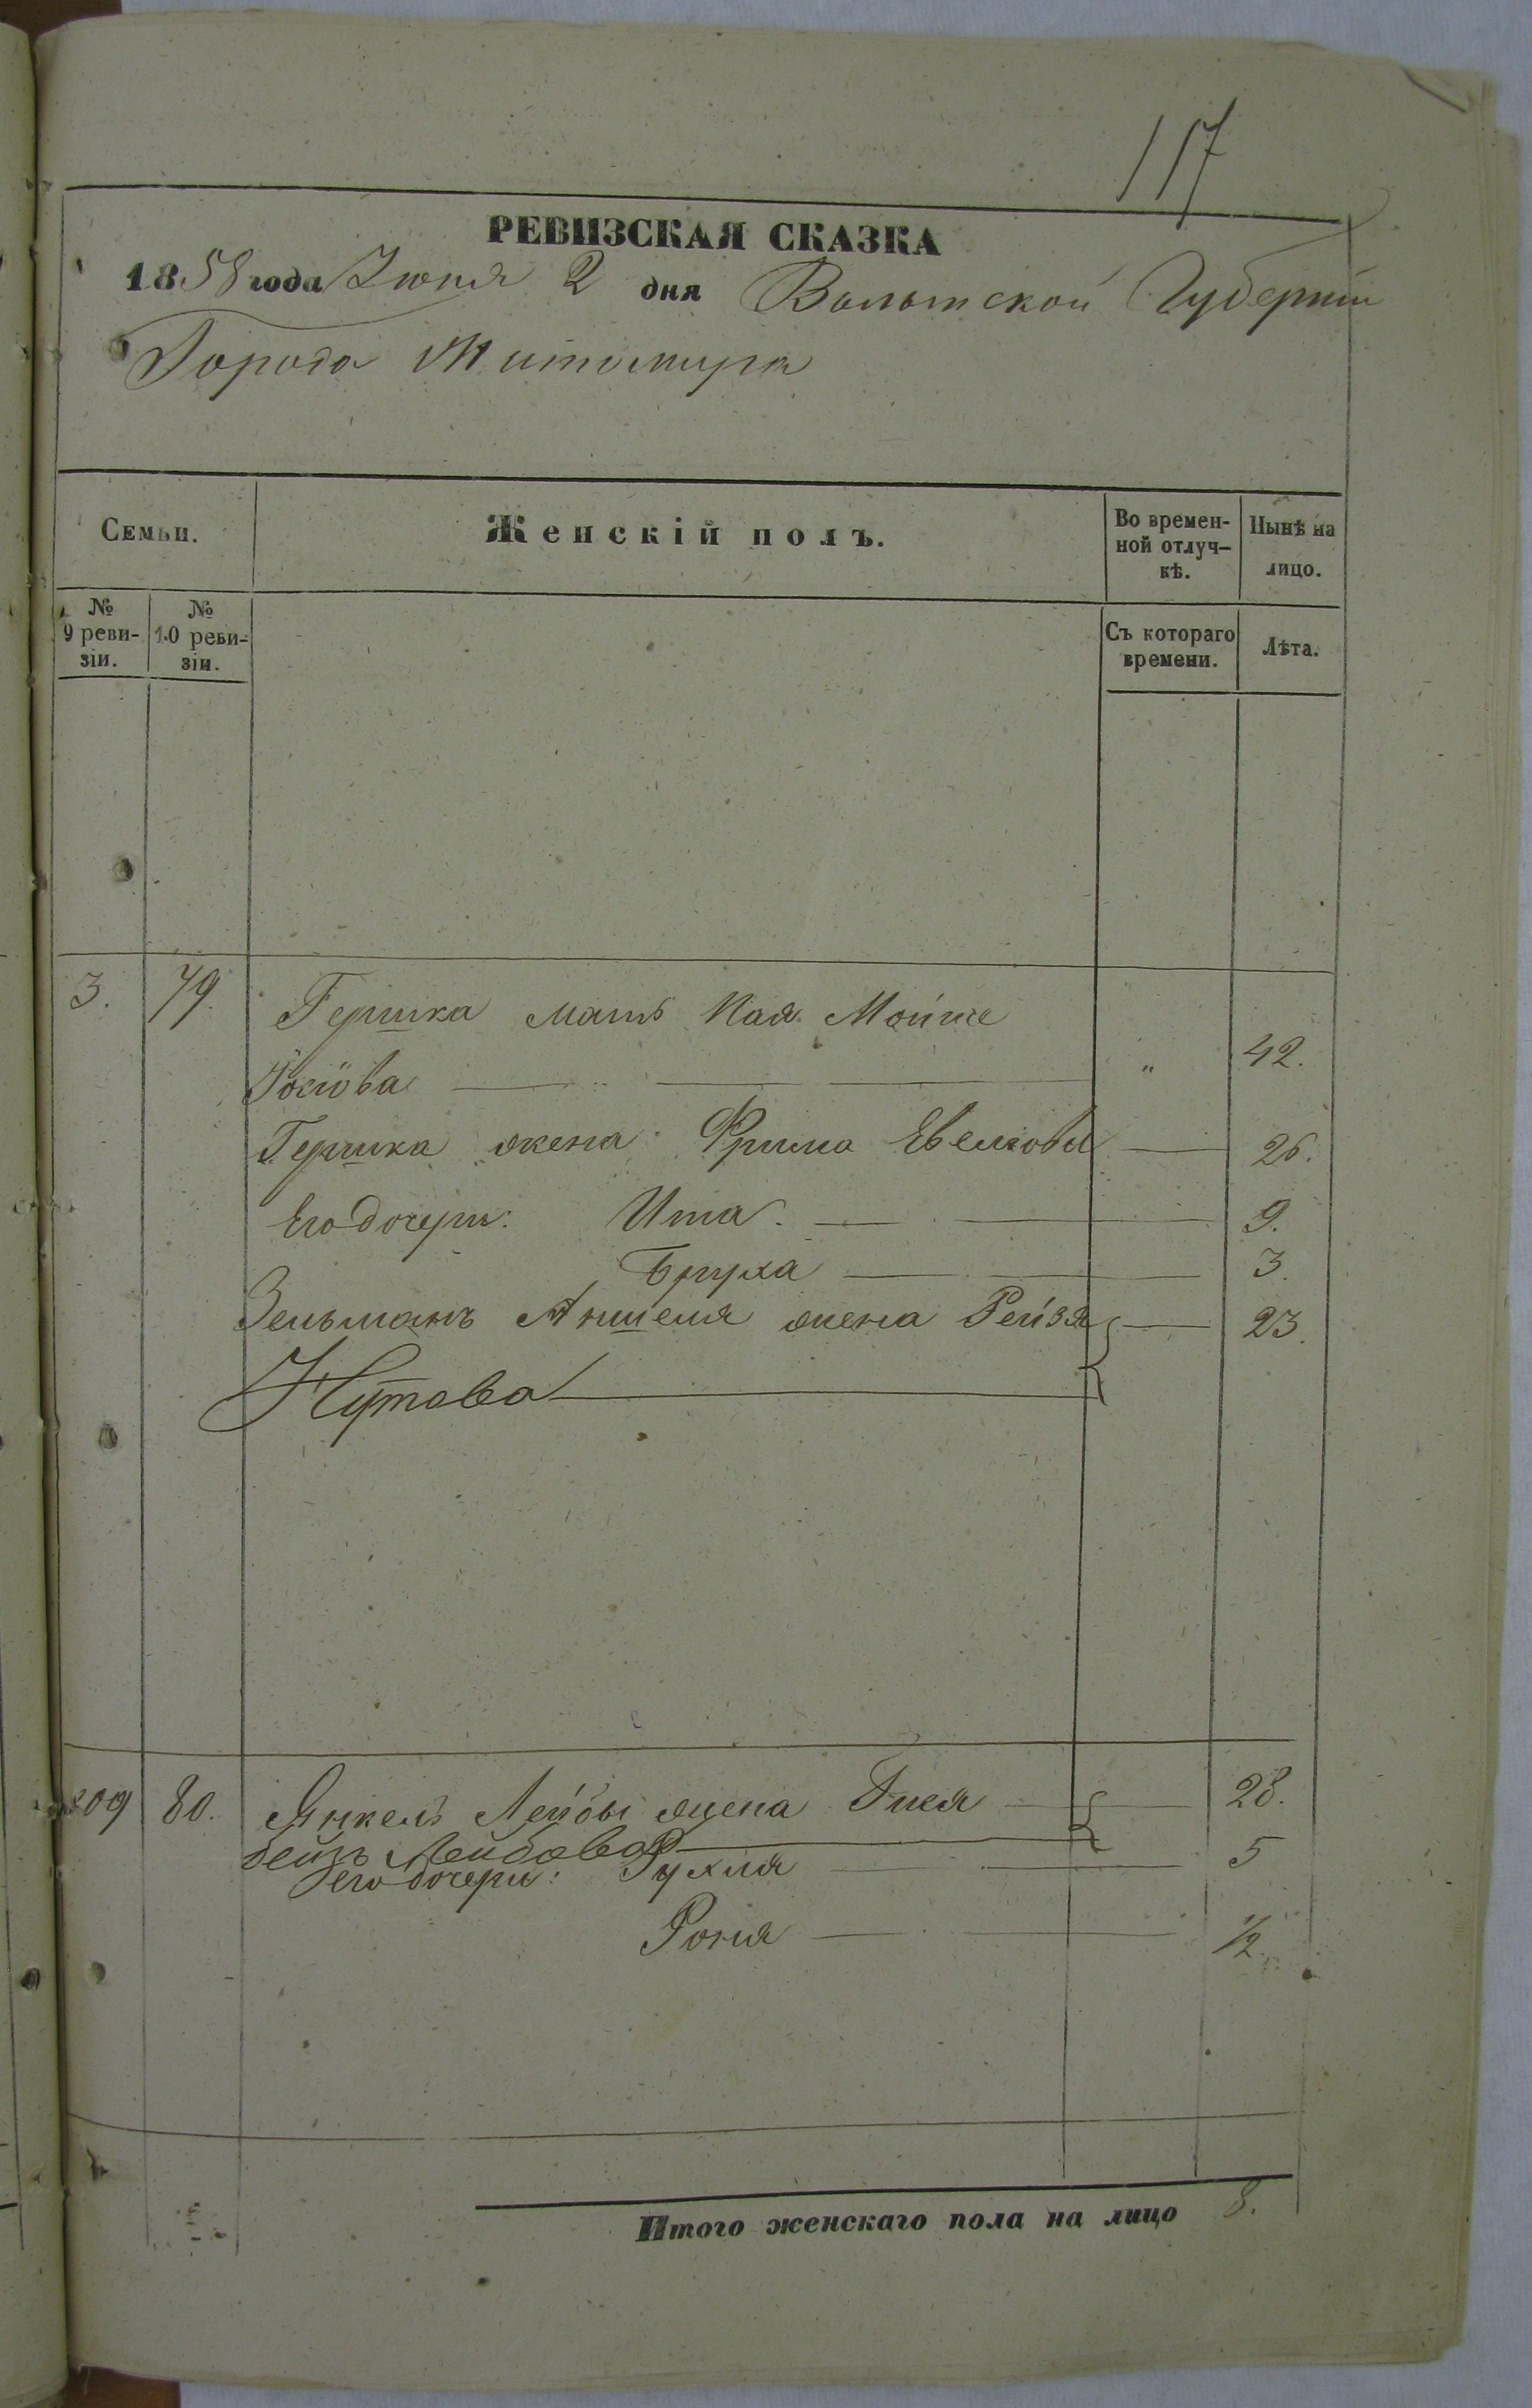 117
РЕВИЗСКАЯ СКАЗКА
1858 года Июня 2 дня Волынской Губерніи
Города Житомира
Семьи.
Женскій полъ.
Во времен-
ной отлуч-
кѣ.
Нынѣ на
лицо.
№
9 реви-
зіи.
№
10 реви-
зіи.
Съ котораго
времени.
Лѣта.
3. 79. Гершка мать Хая Мойше
Іосіова " 42.
Гершка жена Фрима Евелiова 26.
Его дочери: Ита 9.
Бруха 3.
Зельманъ Аншеля жена Рейзя 23.
Нутова
209 80. Янкель Лейбы жена Гнея 28.
Бейнъ Лейбова
его дочери: Рухля 5
Роня 1/2
Итого женскаго пола на лицо 8.